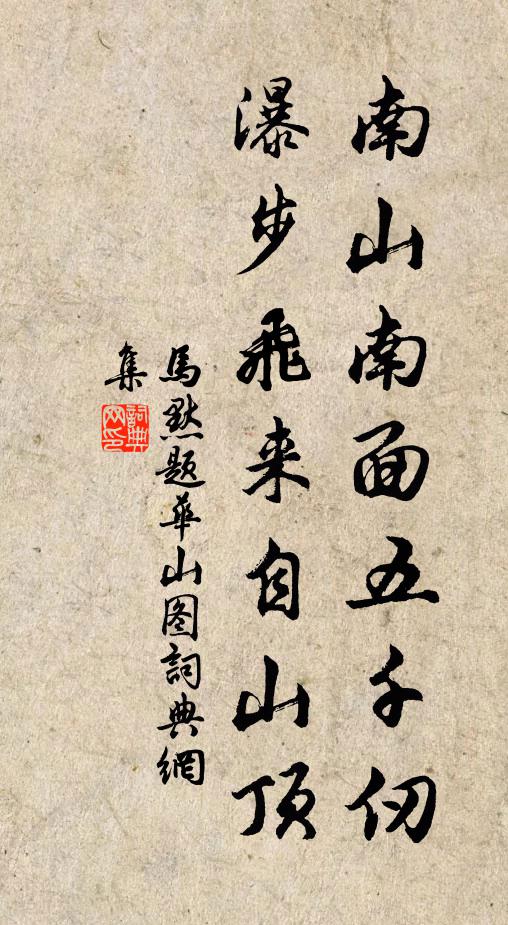 南山南面五千仞
瀑步飛来自山顶
馬默题華山图詞典網
集
詞典
网印